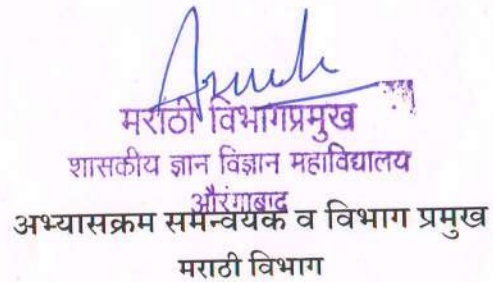 मराठी विभागप्रमुख
शासकीय ज्ञान विज्ञान महाविद्यालय
औरंगाबाद
अभ्यासक्रम समन्वयक व विभाग प्रमुख
मराठी विभाग